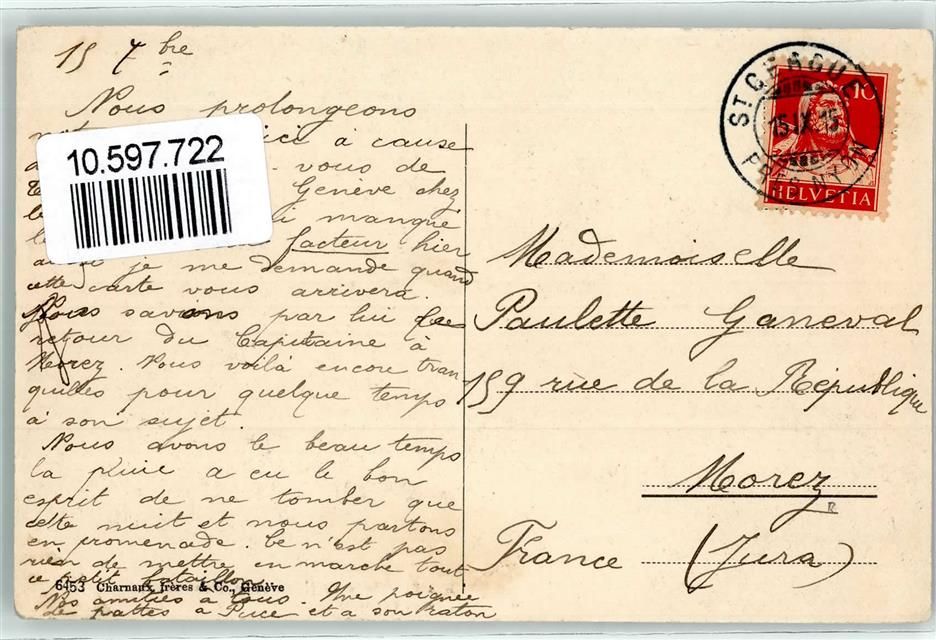 15 7bre
Nous prolongeons
ici à cause
vous de
Genève chez
manque
facteur hier
je me demande quand
cette carte vous arrivera.
Nous savions par lui les
retour du Capitaine à
Morez. Vous voilà encore tran
quilles pour quelque temps
à son sujet.
Nous avons le beau temps
la pluie a eu le bon
esprit de ne tomber que
cette nuit et nous partons
en promenade. Ce n'est pas
rien de mettre en marche tout
ce petit bataillon
Nos amitiés à tous. Une poignée
de pattes à Puce et à son raton
10.597.722
6453 Charnaux frères & Co., Genève
ST CERGUE
15 IX 15
NYON
10
HELVETIA
Mademoiselle
Paulette Ganeval
159 rue de la République
Morez
France (Jura)